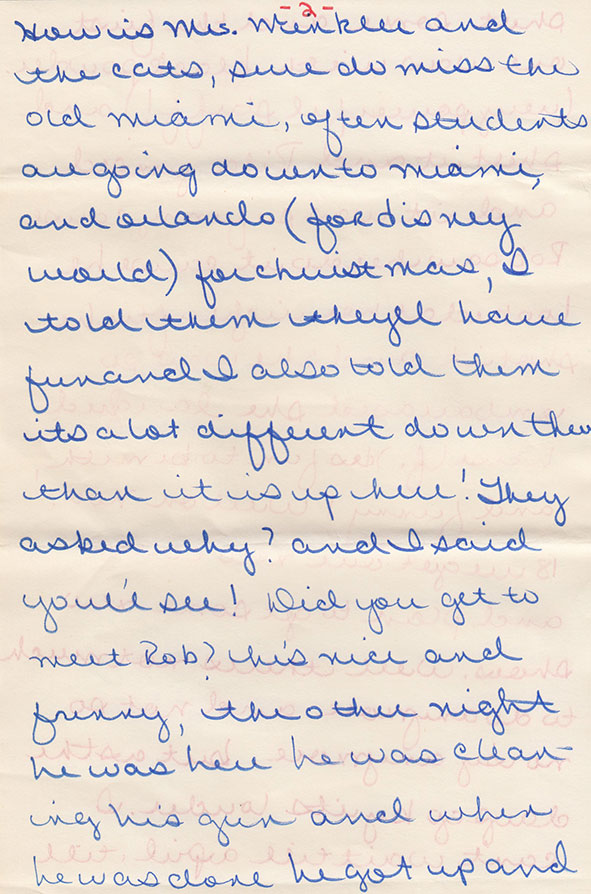 - 2 -
How is Mr. Winklee and
the cats, sure do miss the
old miami, often students
are going down to miami,
and orlando (for disney
world) for christmas, I
told them theyll have
fun and I also told them
its a lot different down ther
than it is up here! They
asked why? and I said
you'll see! Did you get to
meet Rob? he's nice and
funny, the other night
he was here he was clean-
ing his gun and when
he was done he got up and